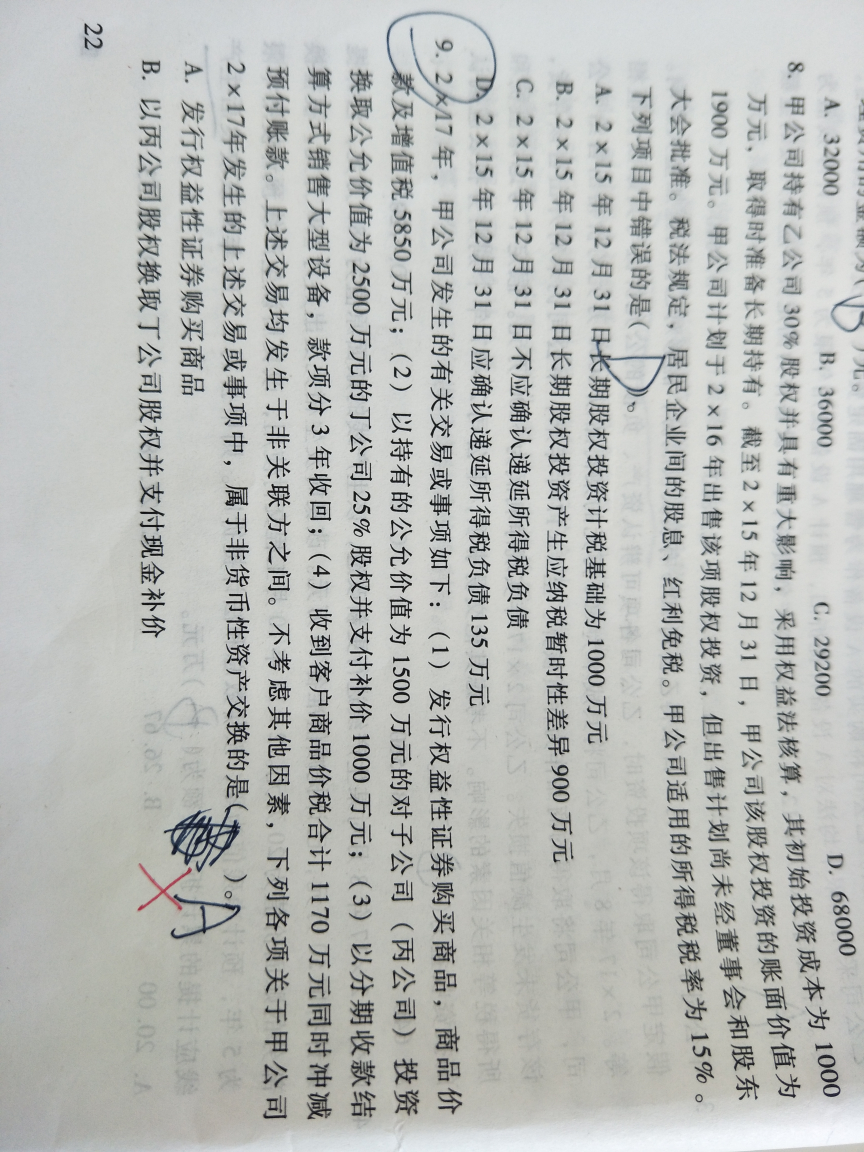 A. 32000 B. 36000 C. 29200 D. 68000
8. 甲公司持有乙公司30%股权并具有重大影响，采用权益法核算，其初始投资成本为1000
万元，取得时准备长期持有。截至2×15年12月31日，甲公司该股权投资的账面价值为
1900万元。甲公司计划于2×16年出售该项股权投资，但出售计划尚未经董事会和股东
大会批准。税法规定，居民企业间的股息、红利免税。甲公司适用的所得税税率为15%。
下列项目中错误的是( D )。
A. 2×15年12月31日长期股权投资计税基础为1000万元
B. 2×15年12月31日长期股权投资产生应纳税暂时性差异900万元
C. 2×15年12月31日不应确认递延所得税负债
D. 2×15年12月31日应确认递延所得税负债135万元
9. 2×17年，甲公司发生的有关交易或事项如下：（1）发行权益性证券购买商品，商品价
款及增值税5850万元；（2）以持有的公允价值为1500万元的对子公司（丙公司）投资
换取公允价值为2500万元的丁公司25%股权并支付补价1000万元；（3）以分期收款结
算方式销售大型设备，款项分3年收回；（4）收到客户商品价税合计1170万元同时冲减
预付账款。上述交易均发生于非关联方之间。不考虑其他因素，下列各项关于甲公司
2×17年发生的上述交易或事项中，属于非货币性资产交换的是( )。 A
A. 发行权益性证券购买商品
B. 以丙公司股权换取丁公司股权并支付现金补价
22